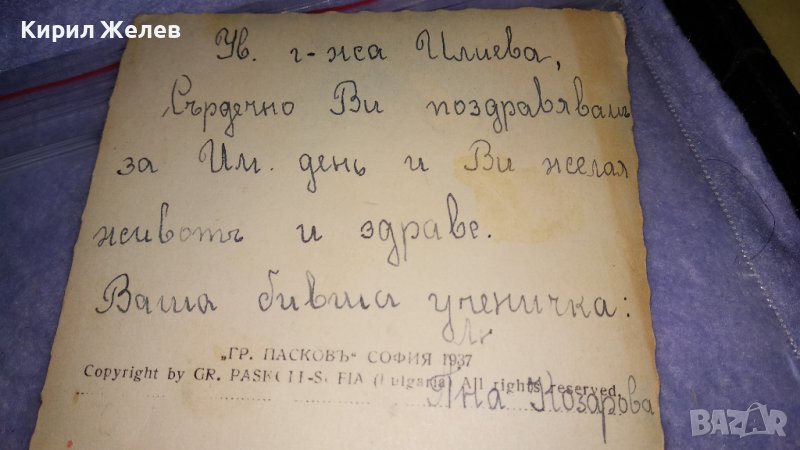 Кирил Желев
Ув. г-жа Илиева,
Сърдечно Ви поздравявамъ
за Им. день и Ви желая
животъ и здраве.
Ваша бивша ученичка:
„ГР. ПАСКОВЪ“ СОФИЯ 1937
Copyright by GR. PASKOFF-SOFIA (Bulgaria) All rights reserved.
Козарова
BAZAR